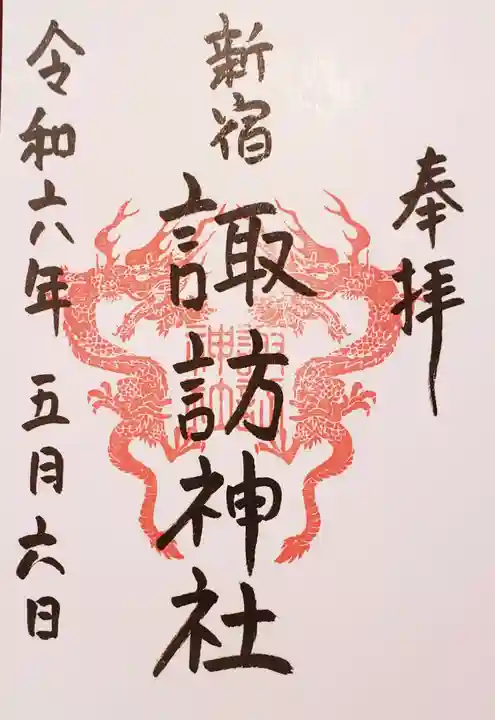 奉拝
新宿
諏訪神社
令和六年 五月六日